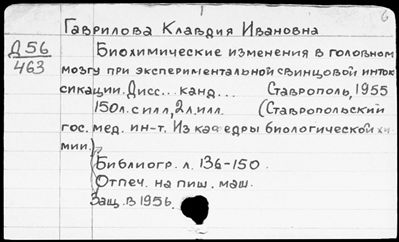 6
Гаврилова Клавдия Ивановна
Д 56
463
Биохимические изменения в головном
мозгу при экспериментальной свинцовой инток
сикации. Дисс... канд... Ставрополь, 1955
150 л. с илл, 2 л. илл. (Ставропольский
гос. мед. ин-т. Из кафедры биологической хи
мии.)
Библиогр. л. 136-150.
Отпеч. на пиш. маш.
Защ. в 1956.